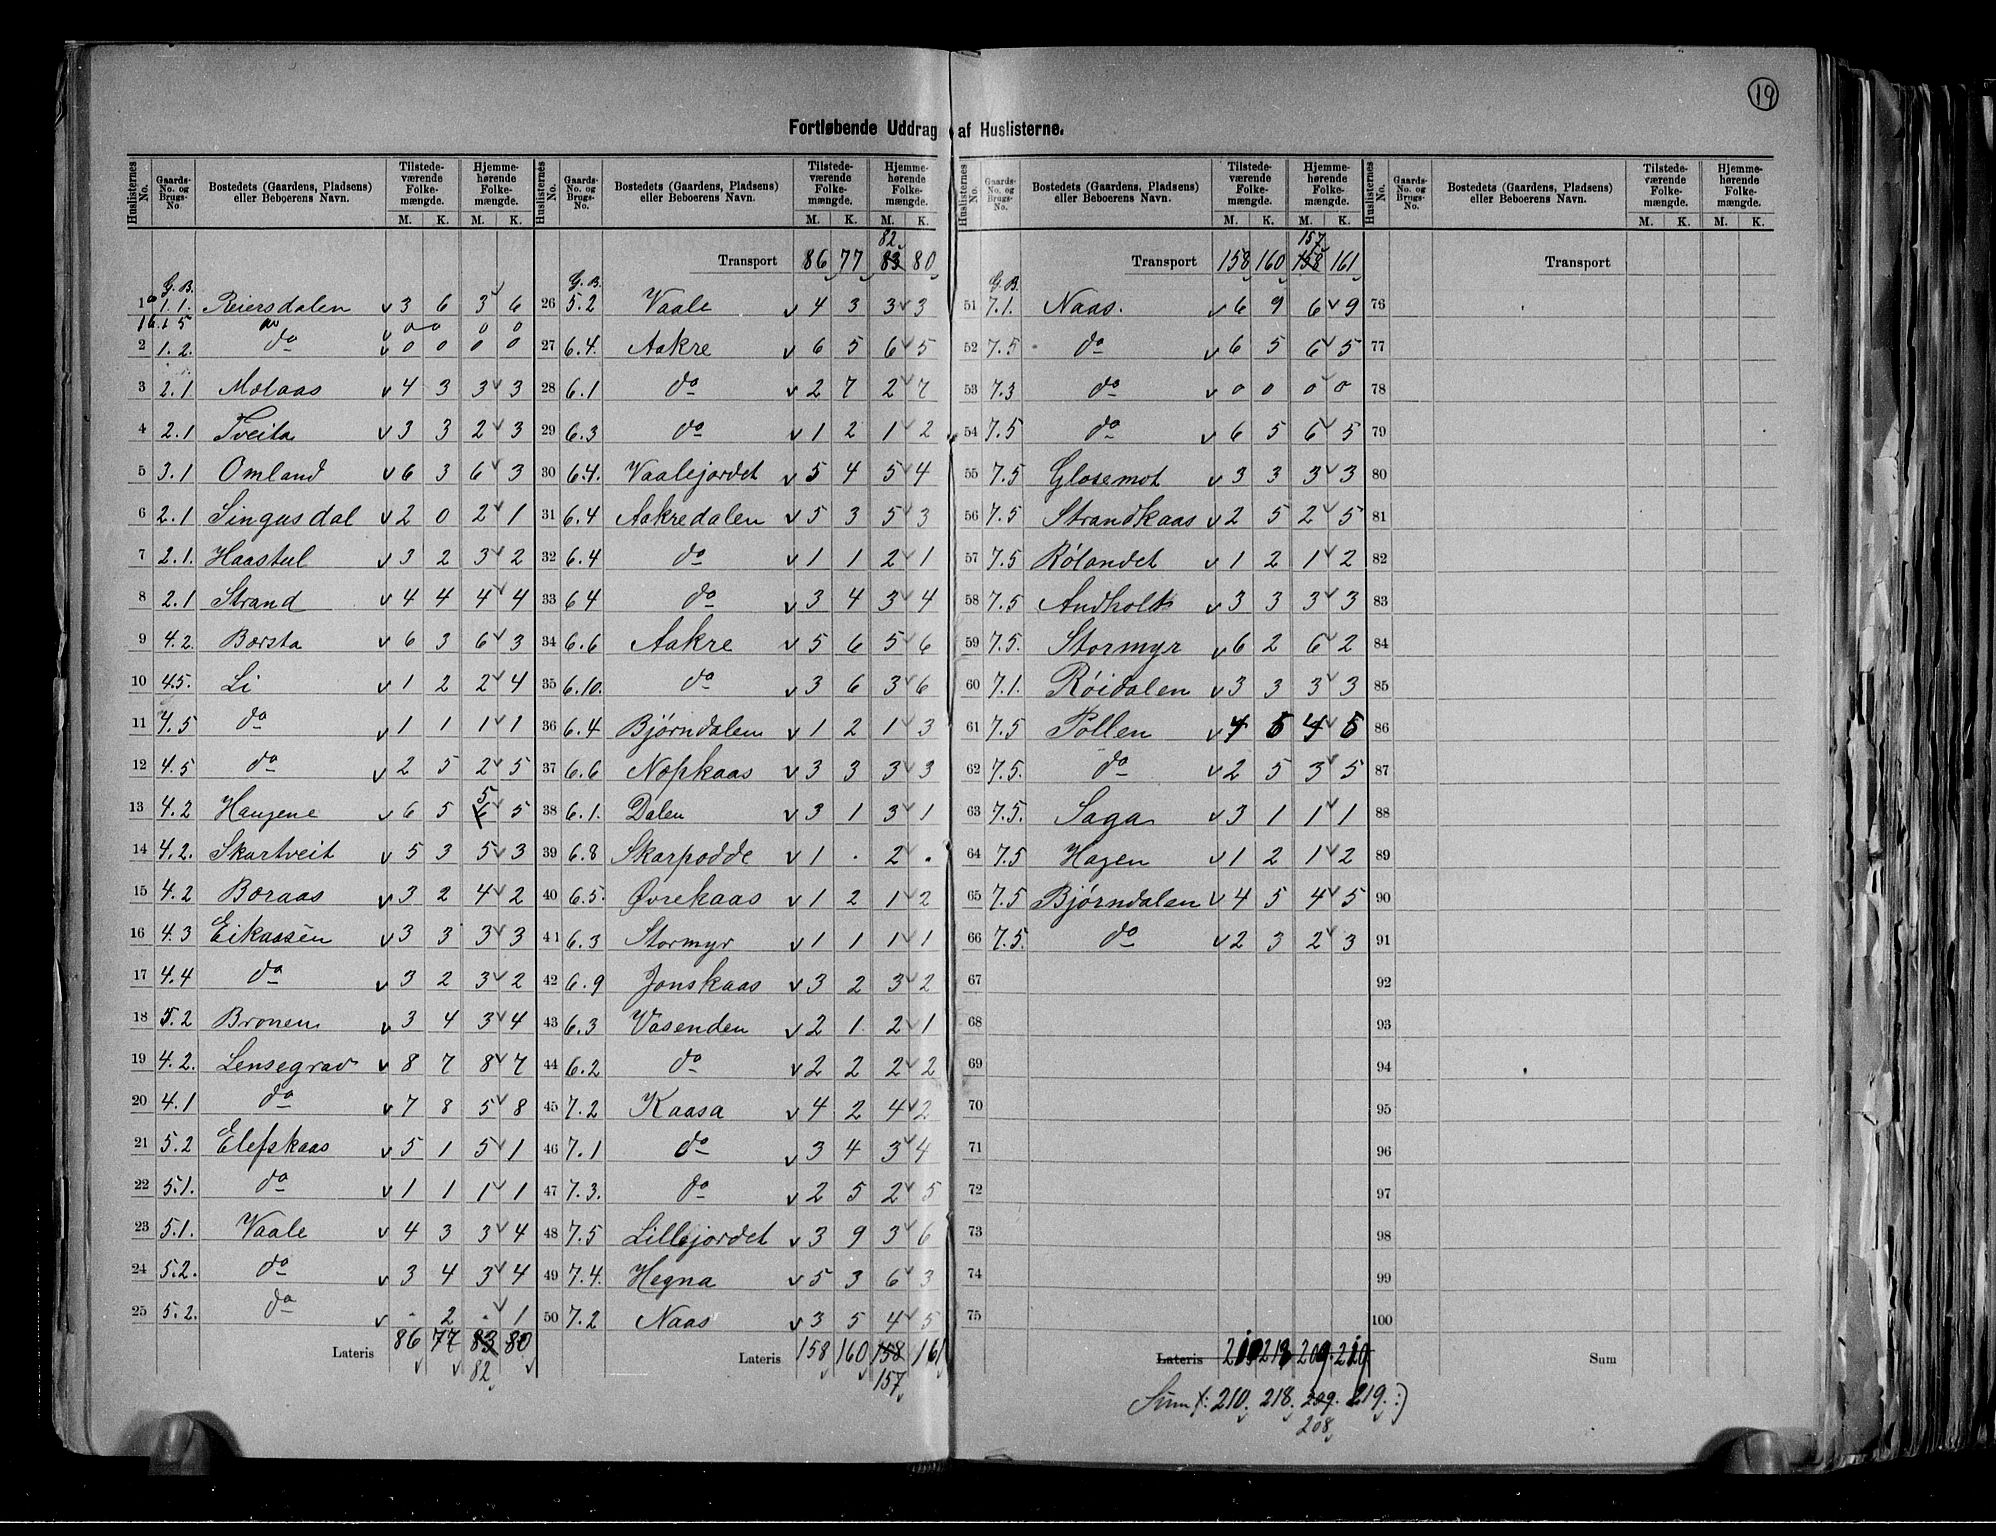 19
Fortløbende Uddrag af Huslisterne.
Huslisternes No. | Gaards-No. og Brugs-No. | Bostedets (Gaardens, Pladsens) eller Beboerens Navn. | Tilstedeværende Folkemængde. M. K. | Hjemmehørende Folkemængde. M. K.
G. B.
1a 1.1. Reiersdalen v 3 6 3 v 6
1b 1.5 do v 0 0 0 0
2 1.2. v 0 0 0 0
3 2.1 Molaas v 4 3 3 v 3
4 2.1 Tveita v 3 3 2 v 3
5 3.1 Omland v 6 3 6 v 3
6 2.1 Singusdal v 2 0 2 v 1
7 2.1. Haastul v 3 2 3 v 2
8 2.1 Strand v 4 4 4 v 4
9 4.2. Borsta v 6 3 6 v 3
10 4.5. Li v 1 2 2 v 4
11 4.5 do v 1 1 1 v 1
12 4.5 do v 2 5 2 v 5
13 4.2 Haugene v 6 5 6 5 v 5
14 4.2. Skartveit v 5 3 5 v 3
15 4.2 Boraas v 3 2 4 v 2
16 4.3 Eikaasen v 3 3 3 v 3
17 4.4 do v 3 2 3 v 2
18 5.2 Bronen v 3 4 3 v 4
19 4.2. Lensegrav v 8 7 8 v 7
20 4.1 do v 7 8 5 v 8
21 5.2 Elefskaas v 5 1 5 v 1
22 5.1. do v 1 1 1 v 1
23 5.1. Vaale v 4 3 3 v 4
24 5.2. do v 3 4 3 v 4
25 5.2. do v . 2 . v 1
Lateris 86 77 83 80
82
Huslisternes No. | Gaards-No. og Brugs-No. | Bostedets (Gaardens, Pladsens) eller Beboerens Navn. | Tilstedeværende Folkemængde. M. K. | Hjemmehørende Folkemængde. M. K.
82
Transport 86 77 83 80
G. B.
26 5.2 Vaale v 4 3 3 v 3
27 6.4. Aakre v 6 5 6 v 5
28 6.1 do v 2 7 2 v 7
29 6.3 do v 1 2 1 v 2
30 6.4. Vaalejordet v 5 4 5 v 4
31 6.4 Aakredalen v 5 3 5 v 3
32 6.4 do v 1 1 2 v 1
33 6 4 do v 3 4 3 v 4
34 6.6 Aakre v 5 6 5 v 6
35 6.10. do v 3 6 3 v 6
36 6.4 Bjørndalen v 1 2 1 v 3
37 6.6 Nopkaas v 3 3 3 v 3
38 6.1. Dalen v 3 1 3 v 1
39 6.8 Skarpodde v 1 . 2 v .
40 6.5. Øvrekaas v 1 2 1 v 2
41 6.3 Stormyr v 1 1 1 v 1
42 6.9 Jonskaas v 3 2 3 v 2
43 6.3 Vasenden v 2 1 2 v 1
44 6.2 do v 2 2 2 v 2
45 7.2 Kaasa v 4 2 4 v 2
46 7.1 do v 3 4 3 v 4
47 7.3. do v 2 5 2 v 5
48 7.5 Lillejordet v 3 9 3 v 6
49 7.4. Hegna v 5 3 6 v 3
50 7.2 Naas v 3 5 4 v 5
Lateris 158 160 158 161
157
Huslisternes No. | Gaards-No. og Brugs-No. | Bostedets (Gaardens, Pladsens) eller Beboerens Navn. | Tilstedeværende Folkemængde. M. K. | Hjemmehørende Folkemængde. M. K.
157
Transport 158 160 158 161
G. B.
51 7.1. Naas. v 6 9 6 v 9
52 7.5 do v 6 5 6 v 5
53 7.3 do v 0 0 0 v 0
54 7.5 do v 6 5 6 v 5
55 7.5 Glosemot v 3 3 3 v 3
56 7.5 Strandkaas v 2 5 2 v 5
57 7.5 Rølandet v 1 2 1 v 2
58 7.5 Andholt v 3 3 3 v 3
59 7.5. Stormyr v 6 2 6 v 2
60 7.1. Røidalen v 3 3 3 v 3
61 7.5 Pollen v 4 5 4 v 5
62 7.5. do v 2 5 3 v 5
63 7.5. Saga v 3 1 1 v 1
64 7.5 Hagen v 1 2 1 v 2
65 7.5 Bjørndalen v 4 5 4 v 5
66 7.5. do v 2 3 2 v 3
67
68
69
70
71
72
73
74
75
Lateris 218 209.
Sum (: 210. 218. 209. 219. :)
208
Huslisternes No. | Gaards-No. og Brugs-No. | Bostedets (Gaardens, Pladsens) eller Beboerens Navn. | Tilstedeværende Folkemængde. M. K. | Hjemmehørende Folkemængde. M. K.
Transport
76
77
78
79
80
81
82
83
84
85
86
87
88
89
90
91
92
93
94
95
96
97
98
99
100
Sum